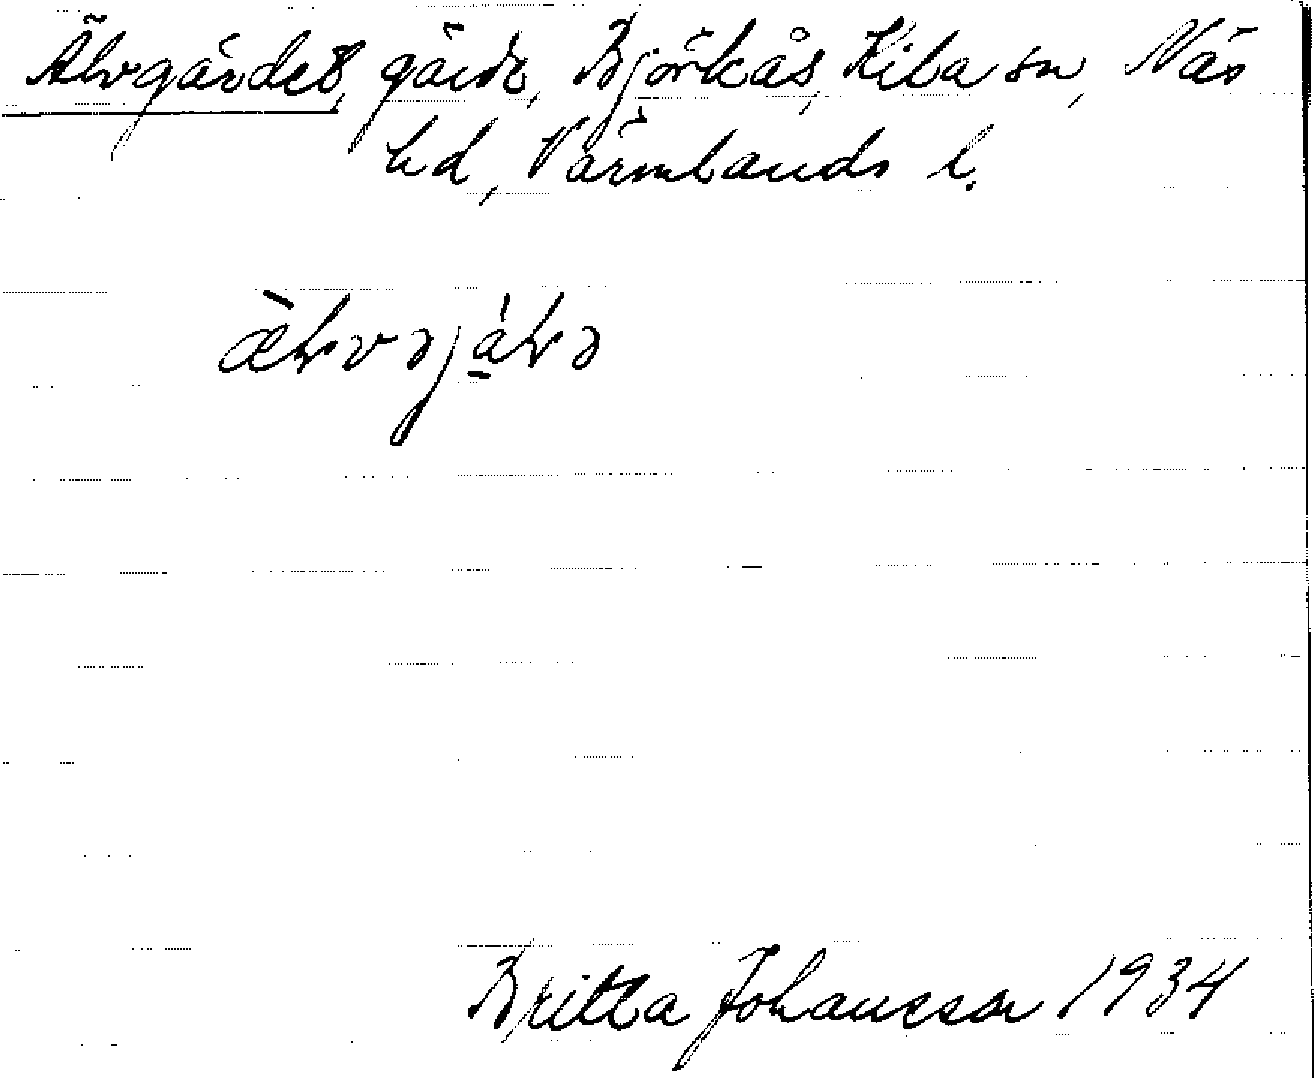 Älvgärdet, gärde, Björkås, Kila sn, Näs
hd, Värmlands l.
Britta Johansson 1934